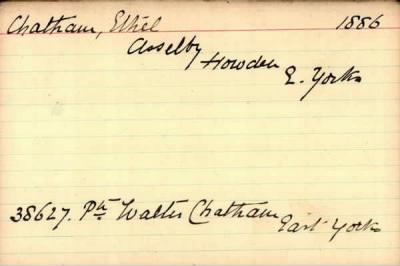 Chatham, Ethel 1886
Asselby
Howden
E. Yorks
38627. Pte Walter Chatham East Yorks